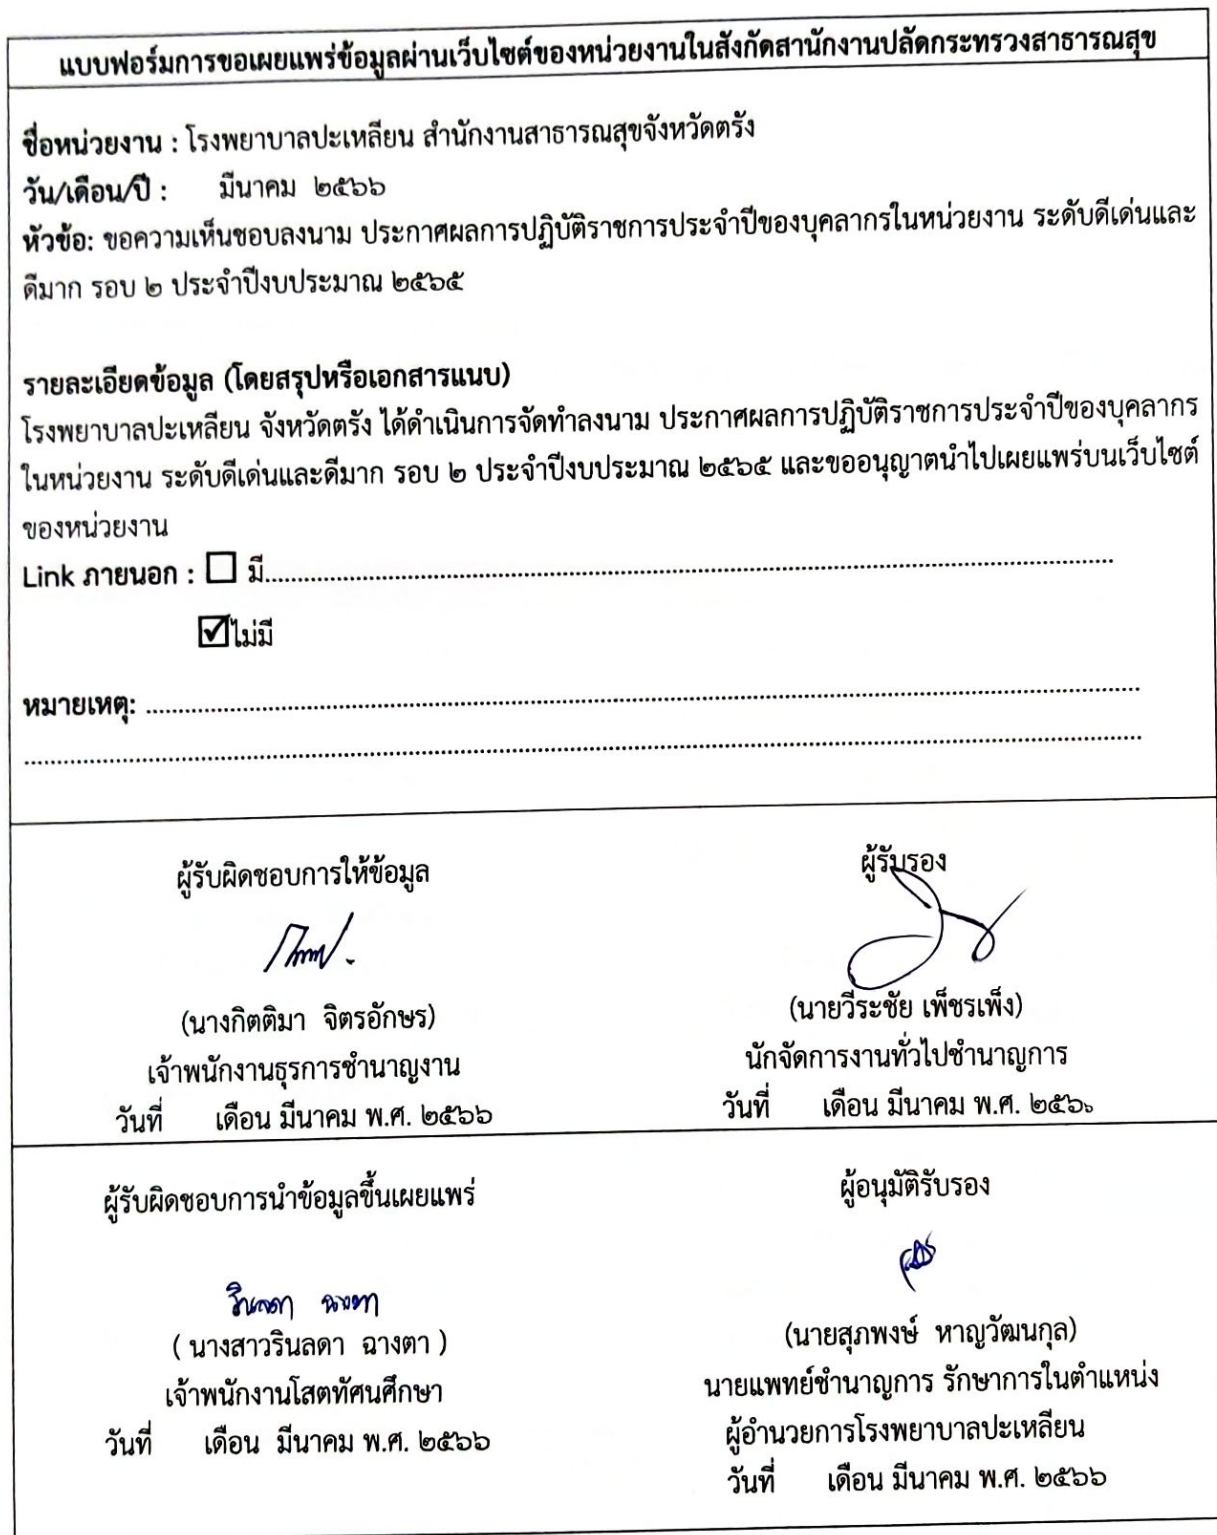 แบบฟอร์มการขอเผยแพร่ข้อมูลผ่านเว็บไซต์ของหน่วยงานในสังกัดสานักงานปลัดกระทรวงสาธารณสุข
ชื่อหน่วยงาน : โรงพยาบาลปะเหลียน สำนักงานสาธารณสุขจังหวัดตรัง
วัน/เดือน/ปี : มีนาคม ๒๕๖๖
หัวข้อ: ขอความเห็นชอบลงนาม ประกาศผลการปฏิบัติราชการประจำปีของบุคลากรในหน่วยงาน ระดับดีเด่นและ
ดีมาก รอบ ๒ ประจำปีงบประมาณ ๒๕๖๕
รายละเอียดข้อมูล (โดยสรุปหรือเอกสารแนบ)
โรงพยาบาลปะเหลียน จังหวัดตรัง ได้ดำเนินการจัดทำลงนาม ประกาศผลการปฏิบัติราชการประจำปีของบุคลากร
ในหน่วยงาน ระดับดีเด่นและดีมาก รอบ ๒ ประจำปีงบประมาณ ๒๕๖๕ และขออนุญาตนำไปเผยแพร่บนเว็บไซต์
ของหน่วยงาน
Link ภายนอก : ☐ มี........................................................................
☑ไม่มี
หมายเหตุ: ........................................................................
........................................................................
ผู้รับผิดชอบการให้ข้อมูล
(นางกิตติมา จิตรอักษร)
เจ้าพนักงานธุรการชำนาญงาน
วันที่ เดือน มีนาคม พ.ศ. ๒๕๖๖
ผู้รับรอง
(นายวีระชัย เพ็ชรเพ็ง)
นักจัดการงานทั่วไปชำนาญการ
วันที่ เดือน มีนาคม พ.ศ. ๒๕๖๖
ผู้รับผิดชอบการนำข้อมูลขึ้นเผยแพร่
รินลดา ฉางตา
( นางสาวรินลดา ฉางตา )
เจ้าพนักงานโสตทัศนศึกษา
วันที่ เดือน มีนาคม พ.ศ. ๒๕๖๖
ผู้อนุมัติรับรอง
(นายสุภพงษ์ หาญวัฒนกุล)
นายแพทย์ชำนาญการ รักษาการในตำแหน่ง
ผู้อำนวยการโรงพยาบาลปะเหลียน
วันที่ เดือน มีนาคม พ.ศ. ๒๕๖๖